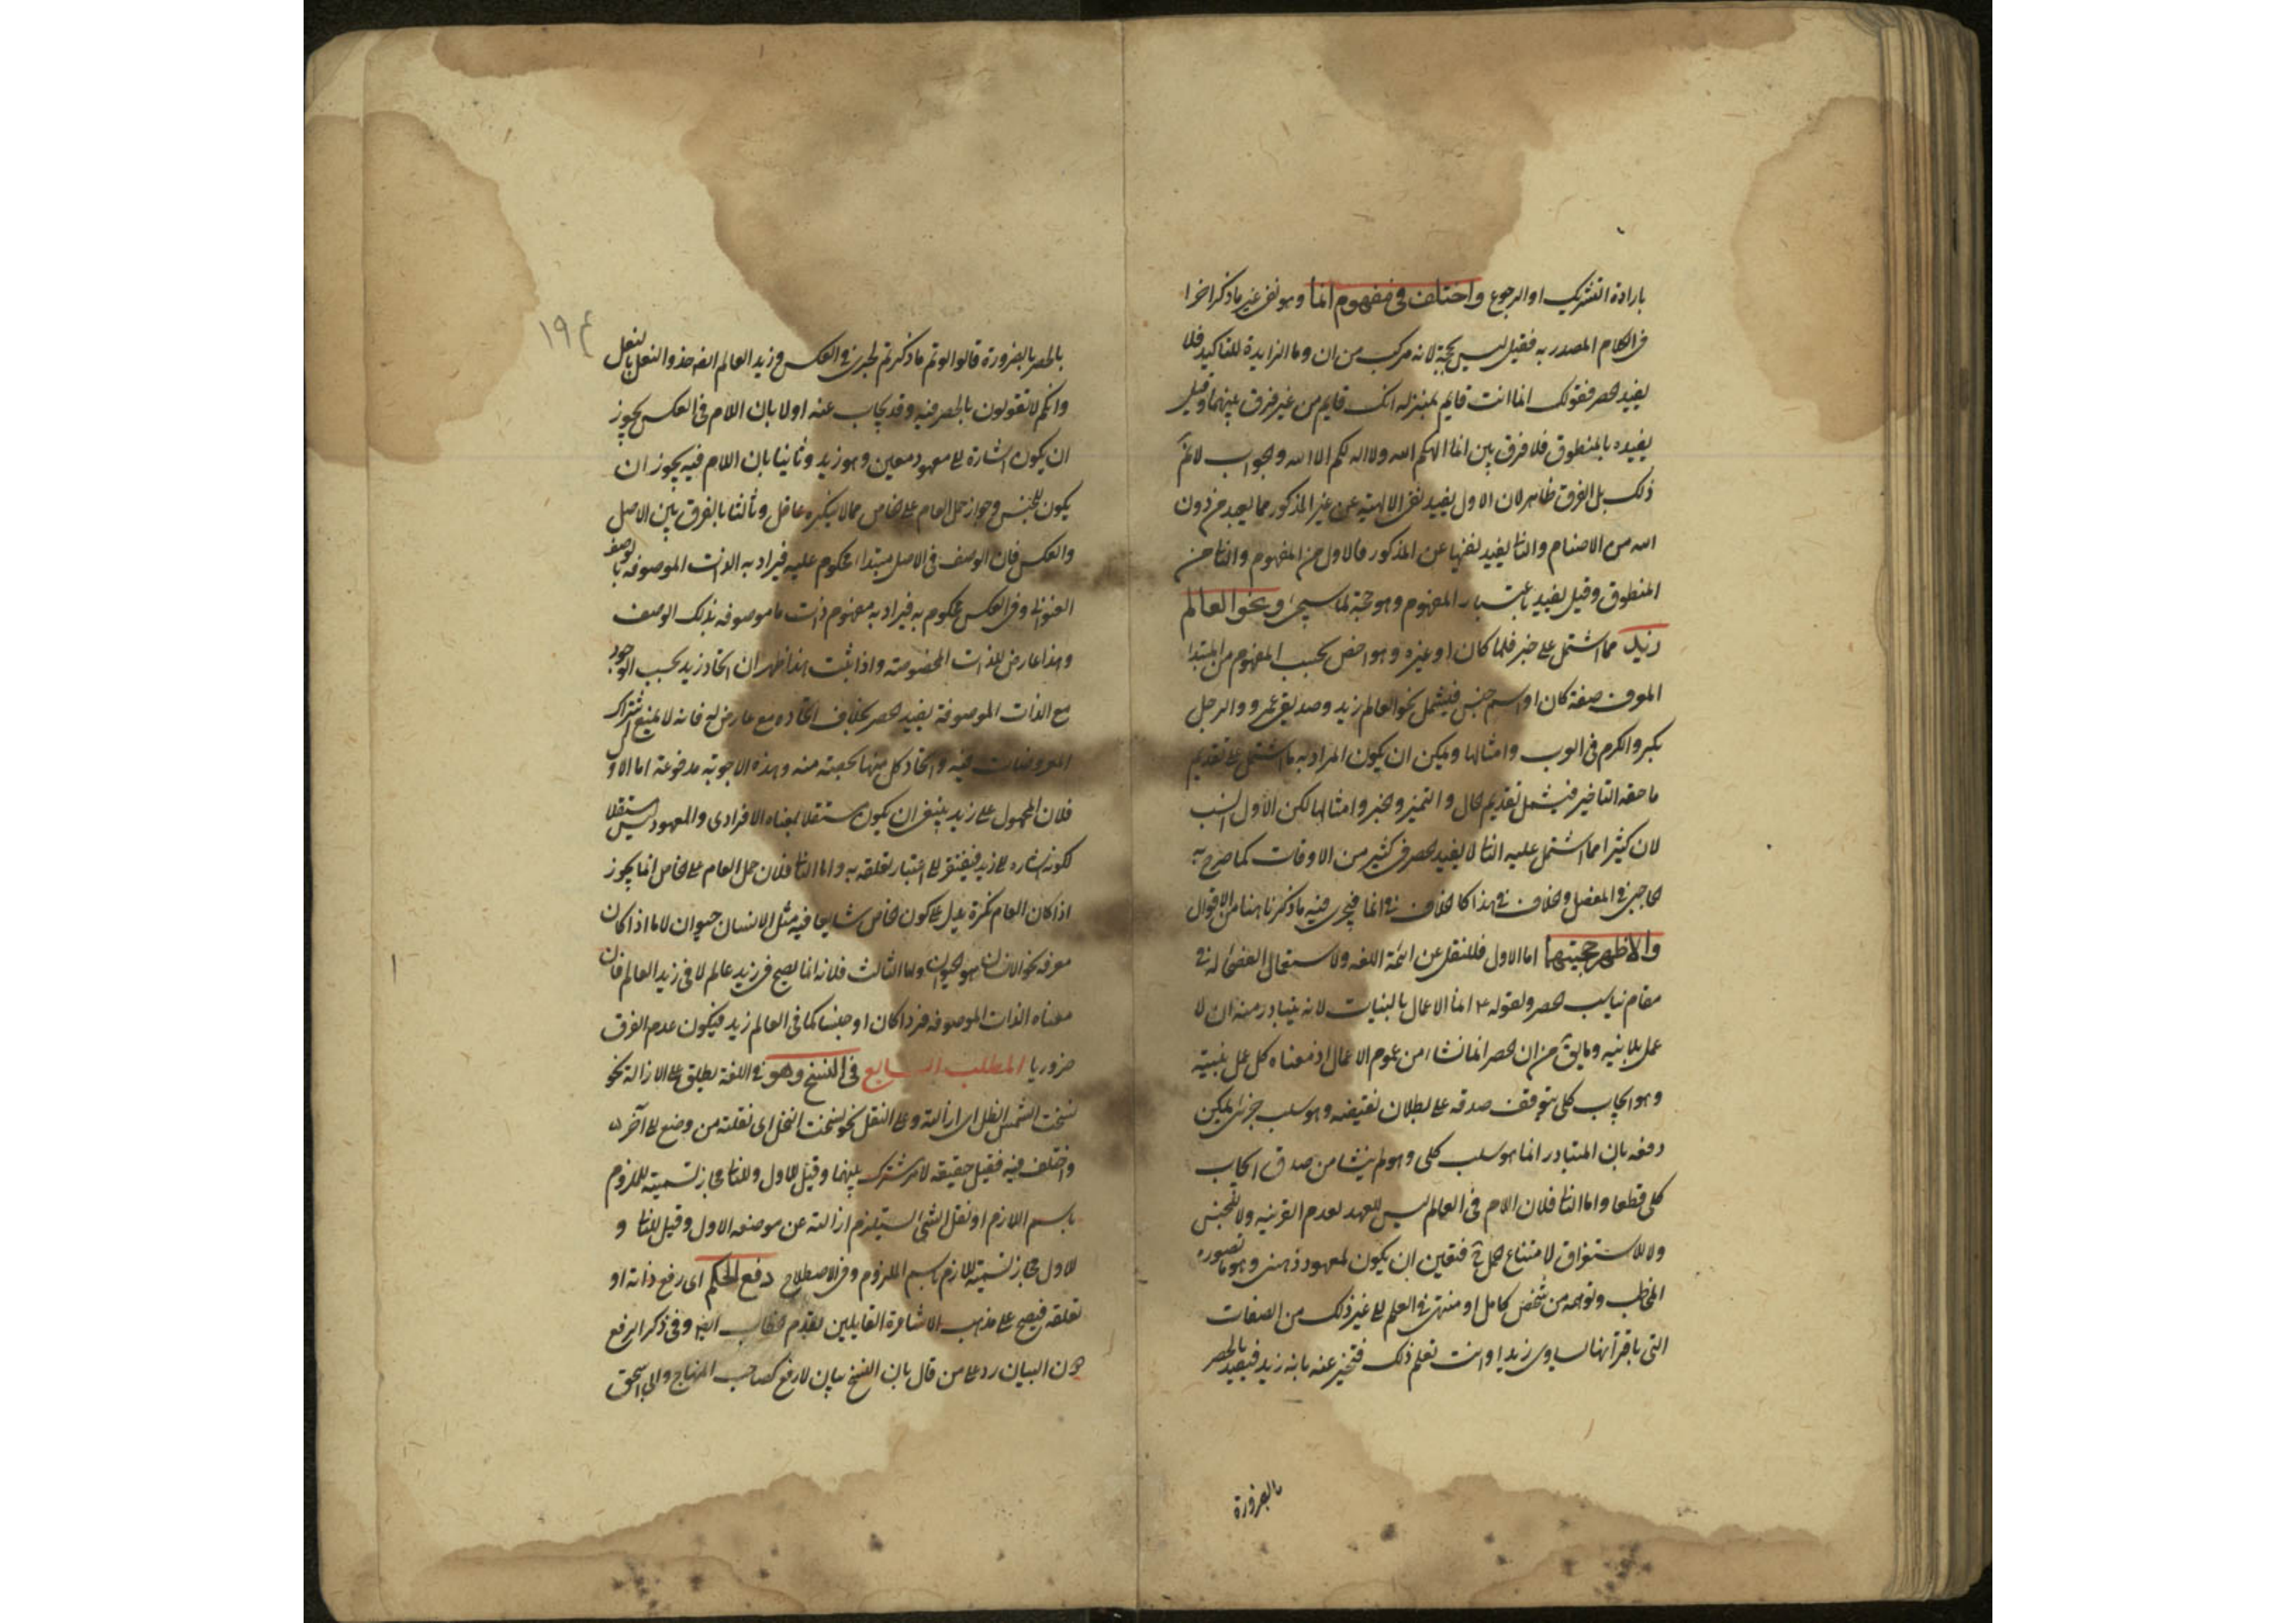 بارادة التشريك او الرجوع واختلف فى مفهوم انما وهو نفى غير ما ذكر اخرا
فى الكلام المصدر به فقيل ليس بحجة لانه مركب من ان وما الزايدة للتاكيد فلا
يفيد الحصر فقولك انما انت قايم بمنزلة انك قايم من غير فرق بينهما وقيل
يفيده بالمنطوق فلا فرق بين انما الهكم الله ولا اله لكم الا الله والجواب لانم
ذلك بل الفرق ظاهر لان الاول يفيد نفى الالهية عن غير المذكور مما يعبد من دون
الله من الاصنام والثانى يفيد نفيها عن المذكور فالاول من المفهوم والثانى من
المنطوق وقيل يفيد باعتبار المفهوم وهو حجة لما سيجئ ونحو العالم
زيد مما اشتمل على خبر فلما كان او غيره وهو اخص بحسب المفهوم من المبتدا
المعرف صفة كان او اسم جنس فيشمل نحو العالم زيد وصديقى عمرو والرجل
بكر والكرم فى العرب وامثالها ويمكن ان يكون المراد به ما اشتمل على تقديم
ما حقه التاخير فيشمل تقديم الحال والتميز والخبر وامثالها لكن الاول انسب
لان كثيرا مما اشتمل عليه الثانى لا يفيد الحصر فى كثير من الاوقات كما صرح به
الحاجبى فى المفصل والخلاف فى هذا كالخلاف فى انما فيجرى فيه ما ذكرنا هنا من الاقوال
والاظهر حجيتهما اما الاول فللنقل عن ائمة اللغه ولاستعمال الفصحاء له فى
مقام يناسب الحصر ولقوله ع انما الاعمال بالنيات لانه يتبادر منه ان لا
عمل بلا نيه وما يق من ان الحصر انما نشاء من عموم الاعمال اذ معناه كل عمل بنية
وهو ايجاب كلى يتوقف صدقه على بطلان نقيضه وهو سلب جزئى يمكن
دفعه بان المتبادر انما هو سلب كلى وهو لم ينشا من صدق ايجاب
كلى قطعا واما الثانى فلان اللام فى العالم ليس للعهد لعدم القرينه ولا للجنس
ولا للاستغراق لامتناع الحمل ح فتعين ان يكون لمعهود ذهنى وهو ما تصوره
المخاطب وتوهمه من شخص كامل او منتهى فى العلم الى غير ذلك من الصفات
التى باقترانها يساوى زيدا وانت تعلم ذلك فتخبر عنه بانه زيد فيفيد الحصر
بالضرورة
١٩٤
بالحصر بالضرورة قالوا لو تم ما ذكرتم لجرى فى العكس وزيد العالم ايضا حذو النعل بالنعل
وانكم لا تقولون بالحصر فيه وقد يجاب عنه اولا بان اللام فى العكس يجوز
ان يكون اشارة الى معهود معين وهو زيد وثانيا بان اللام فيه يجوز ان
يكون للجنس وجواز حمل العام على الخاص مما لا ينكره عاقل وثالثا بالفرق بين الاصل
والعكس فان الوصف فى الاصل مبتداء محكوم عليه فيراد به الذات الموصوفه بالوصف
العنوانى وفى العكس محكوم به فيراد به مفهوم ذات ما موصوفه بذلك الوصف
وهذا عارض للذات المخصوصة واذا ثبت هذا ظهر ان اتحاد زيد بحسب الوجود
مع الذات الموصوفة يفيد الحصر بخلاف اتحاده مع عارض له فانه لا يمنع اشتراك
المعروضات فيه واتحاد كل منها بحصته منه وهذه الاجوبة مدفوعة اما الاول
فلان المحمول على زيد ينبغى ان يكون مستقلا بمعناه الافرادى والمعهود ليس مستقلا
لكونه اشاره الى زيد فيفتقر الى اعتبار تعلقه به واما الثانى فلان حمل العام على الخاص انما يجوز
اذا كان العام نكرة يدل على كون الخاص شايعا فيه مثل الانسان حيوان لا ما اذا كان
معرفه نحو الانسان هو الحيوان واما الثالث فلانه انما يصح فى زيد عالم لا فى زيد العالم فان
معناه الذات الموصوفه فردا كان او جنسا كما فى العالم زيد فيكون عدم الفرق
ضروريا المطلب السابع فى النسخ وهو فى اللغة يطلق على الازالة نحو
نسخت الشمس الظل اى ازالته وعلى النقل نحو نسخت النحل اى نقلته من وضع الى آخر
واختلف فيه فقيل حقيقه لامر مشترك بينهما وقيل للاول وللثانى مجاز تسمية للملزوم
باسم اللازم او نقل الشئ يستلزم ازالته عن موضعه الاول وقيل للثانى و
للاول مجاز تسمية للازم باسم الملزوم وفى الاصطلاح رفع الحكم اى رفع ذاته او
تعلقه فيصح على مذهب الاشاعرة القايلين بقدم الخطاب ايضا وفى ذكر الرفع
دون البيان رد على من قال بان النسخ بيان لا رفع كصاحب المنهاج وابى اسحق